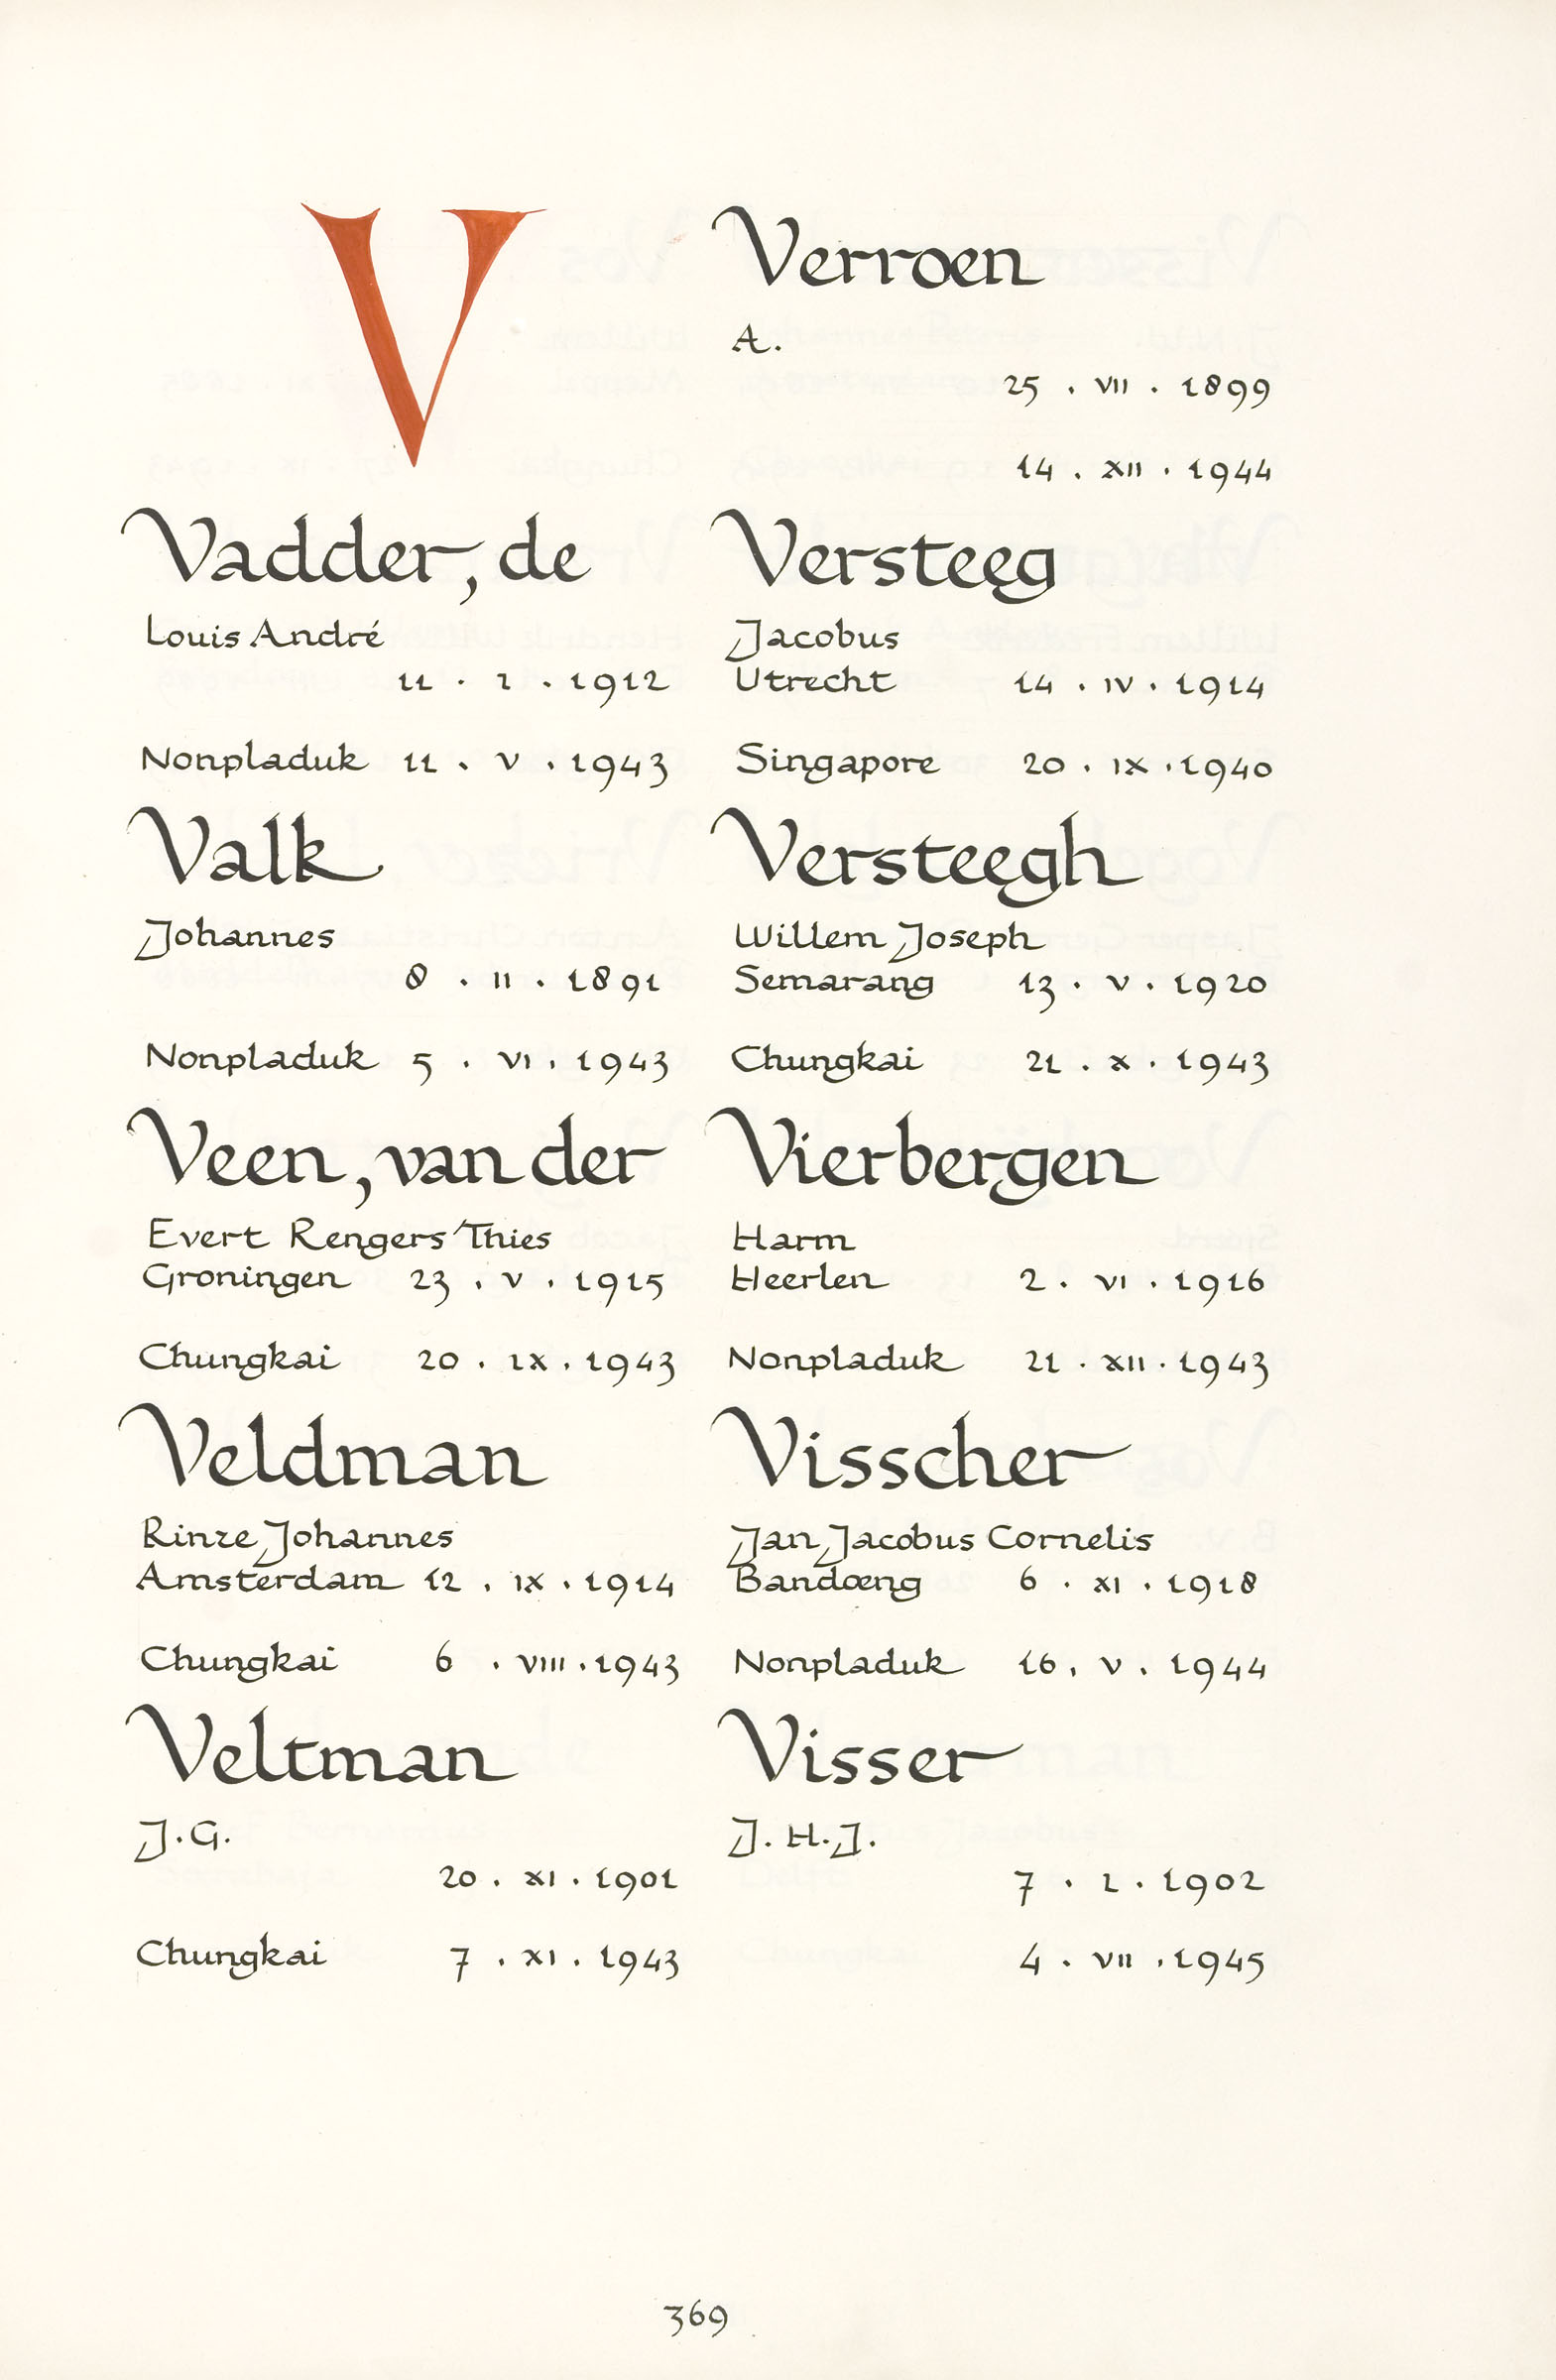 V
Vadder, de
Louis André
11 . I . 1912
Nonpladuk 11 . V . 1943
Valk
Johannes
8 . II . 1891
Nonpladuk 5 . VI . 1943
Veen, van der
Evert Rengers Thies
Groningen 23 . V . 1915
Chungkai 20 . IX . 1943
Veldman
Rinze Johannes
Amsterdam 12 . IX . 1914
Chungkai 6 . VIII . 1943
Veltman
J.G.
20 . XI . 1901
Chungkai 7 . XI . 1943
Verroen
A.
25 . VII . 1899
14 . XII . 1944
Versteeg
Jacobus
Utrecht 14 . IV . 1914
Singapore 20 . IX . 1940
Versteegh
Willem Joseph
Semarang 13 . V . 1920
Chungkai 21 . X . 1943
Vierbergen
Harm
Heerlen 2 . VI . 1916
Nonpladuk 21 . XII . 1943
Visscher
Jan Jacobus Cornelis
Bandoeng 6 . XI . 1918
Nonpladuk 16 . V . 1944
Visser
J. H. J.
7 . I . 1902
4 . VII . 1945
369